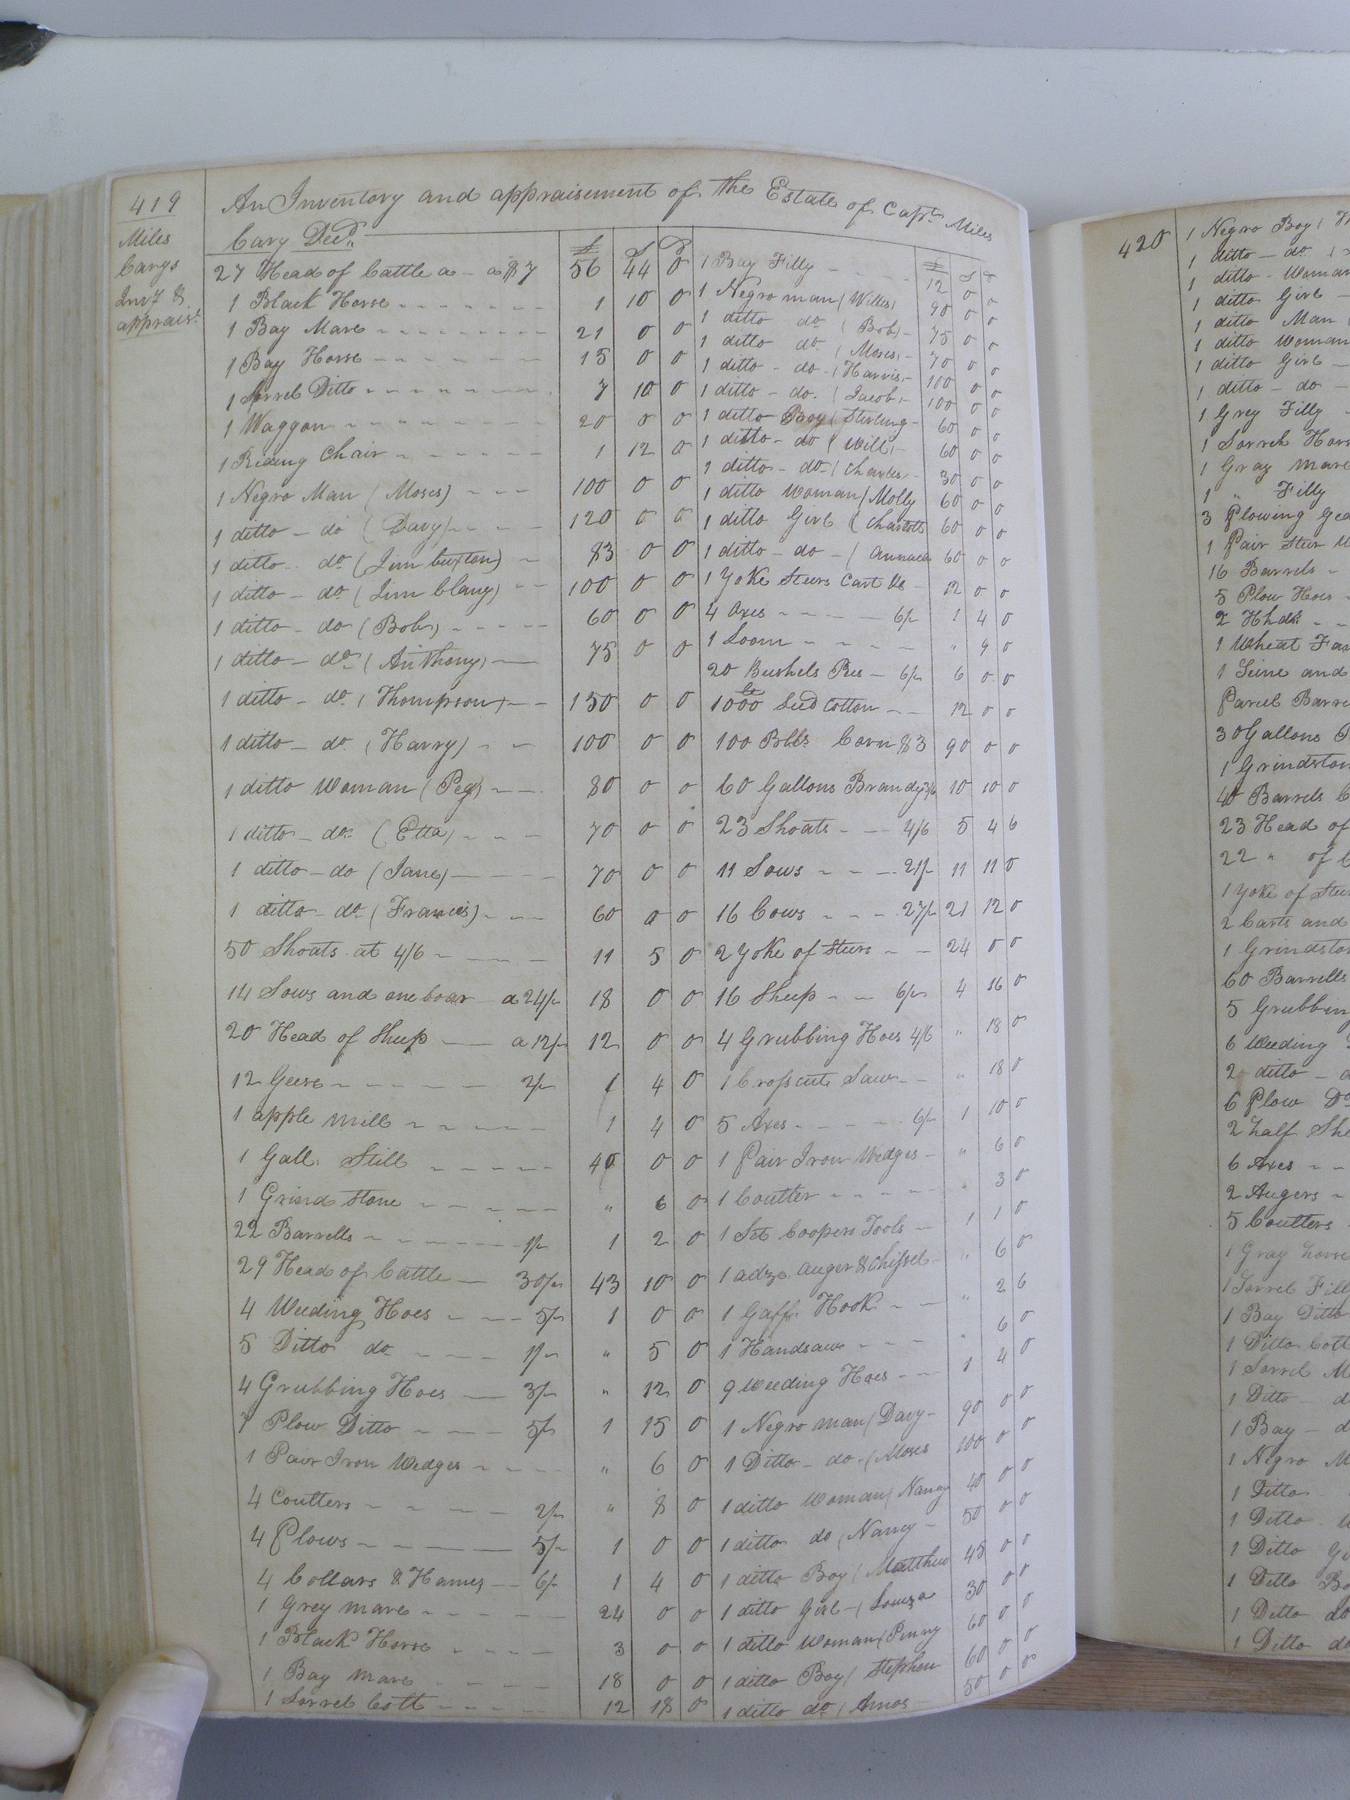 419
Miles
Carys
Inv.y &
apprais.t
An Inventory and appraisement of the Estate of Capt. Miles
Cary Dec.d
£ S D
27 Head of Cattle a - a $7 56 44 0
1 Black Horse 1 10 0
1 Bay Mare 21 0 0
1 Bay Horse 15 0 0
1 Sorrel Ditto 7 10 0
1 Waggon 20 0 0
1 Riding Chair 1 12 0
1 Negro Man (Moses) 100 0 0
1 ditto - do (Davy) 120 0 0
1 ditto - do (Jim buxton) 83 0 0
1 ditto - do (Jim Clany) 100 0 0
1 ditto - do (Bob) 60 0 0
1 ditto - do (Anthony) 75 0 0
1 ditto - do (Thompson) 150 0 0
1 ditto - do (Harry) 100 0 0
1 ditto Woman (Peg) 80 0 0
1 ditto - do (Etta) 70 0 0
1 ditto - do (Jane) 70 0 0
1 ditto - do (Francis) 60 0 0
50 Shoats at 4/6 11 5 0
14 Sows and one boar a 24/- 18 0 0
20 Head of Sheep a 12/- 12 0 0
12 Geese 2/- 1 4 0
1 apple mill 1 4 0
1 Gall. Still 40 0 0
1 Grind Stone " 6 0
22 Barrells 1/- 1 2 0
29 Head of Cattle 30/- 43 10 0
4 Weeding Hoes 5/- 1 0 0
5 Ditto do 1/- " 5 0
4 Grubbing Hoes 3/- " 12 0
7 Plow Ditto 5/- 1 15 0
1 Pair Iron Wedges " 6 0
4 Coutters 2/- " 8 0
4 Plows 5/- 1 0 0
4 Collars & Hames 6/- 1 4 0
1 Grey mare 24 0 0
1 Black Horse 3 0 0
1 Bay mare 18 0 0
1 Sorrel Colt 12 18 0
£ S D
1 Bay Filly 12 0 0
1 Negro man (Willis) 90 0 0
1 ditto do (Bob) 75 0 0
1 ditto do (Moses) 70 0 0
1 ditto - do (Harris) 100 0 0
1 ditto - do (Jacob) 100 0 0
1 ditto Boy (Sterling 60 0 0
1 ditto - do (Will) 60 0 0
1 ditto - do (Charles 30 0 0
1 ditto Woman (Molly 60 0 0
1 ditto Girl (Charlotte 60 0 0
1 ditto - do - ( 60 0 0
1 Yoke Steers Cart &c 12 0 0
4 Axes 6/- 1 4 0
1 Loom " 9 0
20 Bushels Pees 6/- 6 0 0
1000 lb Seed Cotton 12 0 0
100 Bbls Corn $3 90 0 0
60 Gallons Brandy 3/6 10 10 0
23 Shoats 4/6 5 4 6
11 Sows 21/- 11 11 0
16 Cows 27/- 21 12 0
2 Yoke of Steers 24 0 0
16 Sheep 6/- 4 16 0
4 Grubbing Hoes 4/6 " 18 0
1 Crosscut Saw " 18 0
5 Axes 6/- 1 10 0
1 Pair Iron Wedges " 6 0
1 Coutter " 3 0
1 Set Coopers Tools 1 1 0
1 adze auger & chissel " 6 0
1 Gaff Hook " 2 6
1 Handsaw " 6 0
9 Weeding Hoes 1 4 0
1 Negro man (Davy 90 0 0
1 Ditto - do (Moses 100 0 0
1 ditto Woman (Nancy 40 0 0
1 ditto do (Nancy 50 0 0
1 ditto Boy (Matthew 45 0 0
1 ditto Girl (Louiza 30 0 0
1 ditto Woman (Penny 60 0 0
1 ditto Boy (Stephen 60 0 0
1 ditto do (Amos 50 0 0
420
1 Negro Boy (
1 ditto - do (
1 ditto - Woman
1 ditto Girl
1 ditto Man (
1 ditto Woman
1 ditto Girl
1 ditto - do
1 Grey Filly
1 Sorrel Hors
1 Gray mare
1 " Filly
3 Plowing Gea
1 Pair Steer
16 Barrels
5 Plow Hoes
2 Hhds
1 Wheat Fan
1 Seine and
Parcel Barre
30 Gallons
1 Grindston
40 Barrels
23 Head of
22 " of
1 Yoke of Stee
2 Carts and
1 Grindston
60 Barrells
5 Grubbing
6 Weeding
2 ditto - d
6 Plow Do
2 half She
6 Axes
2 Augers
5 Coutters
1 Gray horse
1 Sorrel Fill
1 Bay Ditto
1 Ditto Colt
1 Sorrel M
1 Ditto d
1 Bay - d
1 Negro M
1 Ditto
1 Ditto
1 Ditto Gi
1 Ditto Bo
1 Ditto do
1 Ditto do